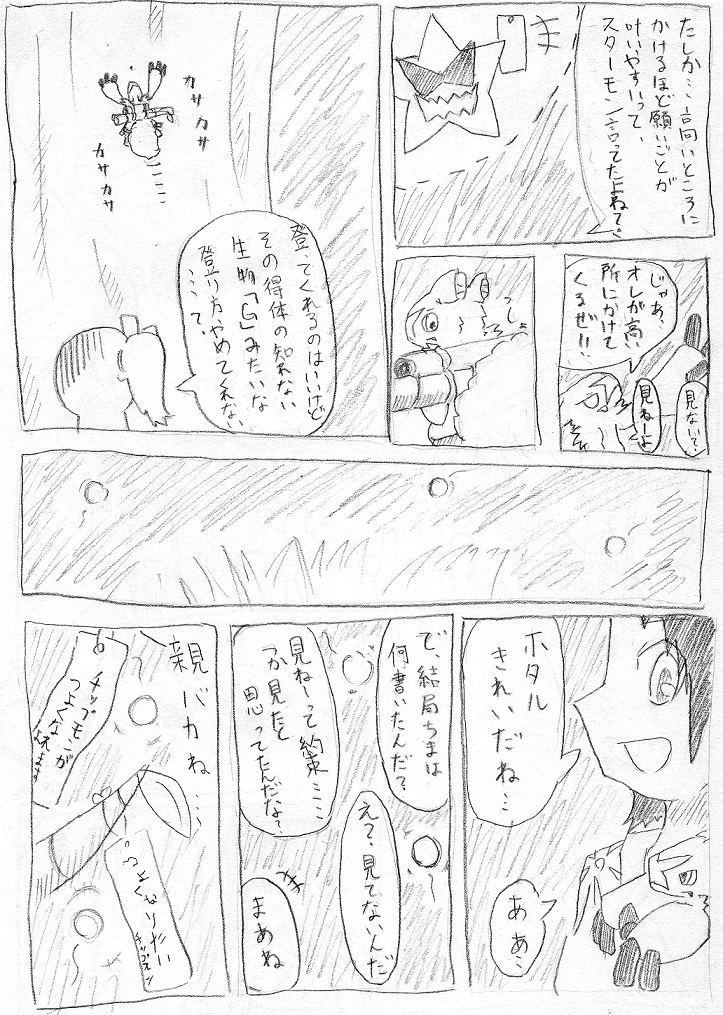 たしか…高いところに
かけるほど願いごとが
叶いやすいって、
スターモン言ってたよね？
じゃあ、
オレが高い
所にかけて
くるぜ!!
見ない？
見ねーよ
っしょ
カサカサ
カサカサ
登ってくれるのはいけど
その得体の知れない
生物「G」みたいな
登り方やめてくれない
…って、
ホタル
きれいだね…
ああ…
で、結局ちまは
何書いたんだ？
見ねーって約束……
つか見たと
思ってたんだな？
え？見てないんだ
まあね
親バカね…
チップモンが
つよくな
れます
つよくなりたい
チップモン